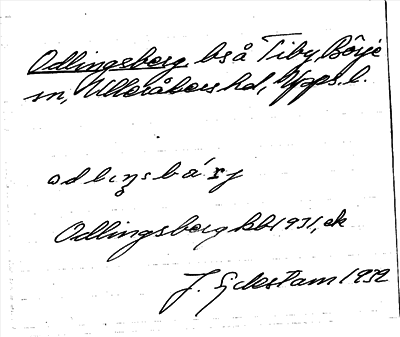 Odlingsborg, bs å Tiby, Börje
sn, Ulleråkers hd, Upps. l.
odliŋsbárj
Odlingsborg kb 1931, ek
J. Sjelestam 1932